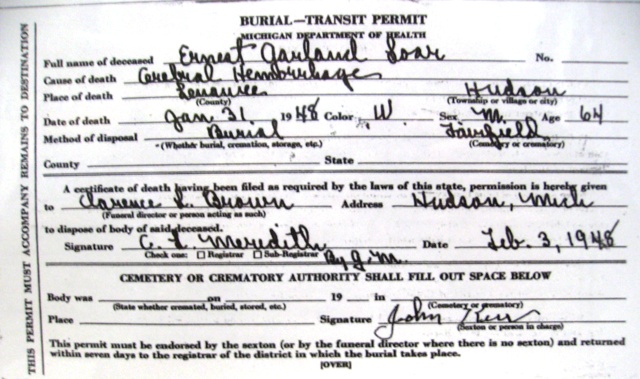 BURIAL—TRANSIT PERMIT
MICHIGAN DEPARTMENT OF HEALTH
Full name of deceased Ernest Garland Soar No.
Cause of death Cerebral Hemorrhage
Place of death Lenawee Hudson
(County) (Township or village or city)
Date of death Jan 31 1948 Color W. Sex M. Age 64
Method of disposal Burial Fairfield
(Whether burial, cremation, storage, etc.) (Cemetery or crematory)
County State
A certificate of death having been filed as required by the laws of this state, permission is hereby given
to Clarence L. Brown Address Hudson, Mich
(Funeral director or person acting as such)
to dispose of body of said deceased.
Signature C. L. Meredith Date Feb. 3, 1948
Check one: □ Registrar □ Sub-Registrar By J. M.
CEMETERY OR CREMATORY AUTHORITY SHALL FILL OUT SPACE BELOW
Body was on 19 in
(State whether cremated, buried, stored, etc.) (Cemetery or crematory)
Place Signature John
(Sexton or person in charge)
This permit must be endorsed by the sexton (or by the funeral director where there is no sexton) and returned
within seven days to the registrar of the district in which the burial takes place.
[OVER]
THIS PERMIT MUST ACCOMPANY REMAINS TO DESTINATION